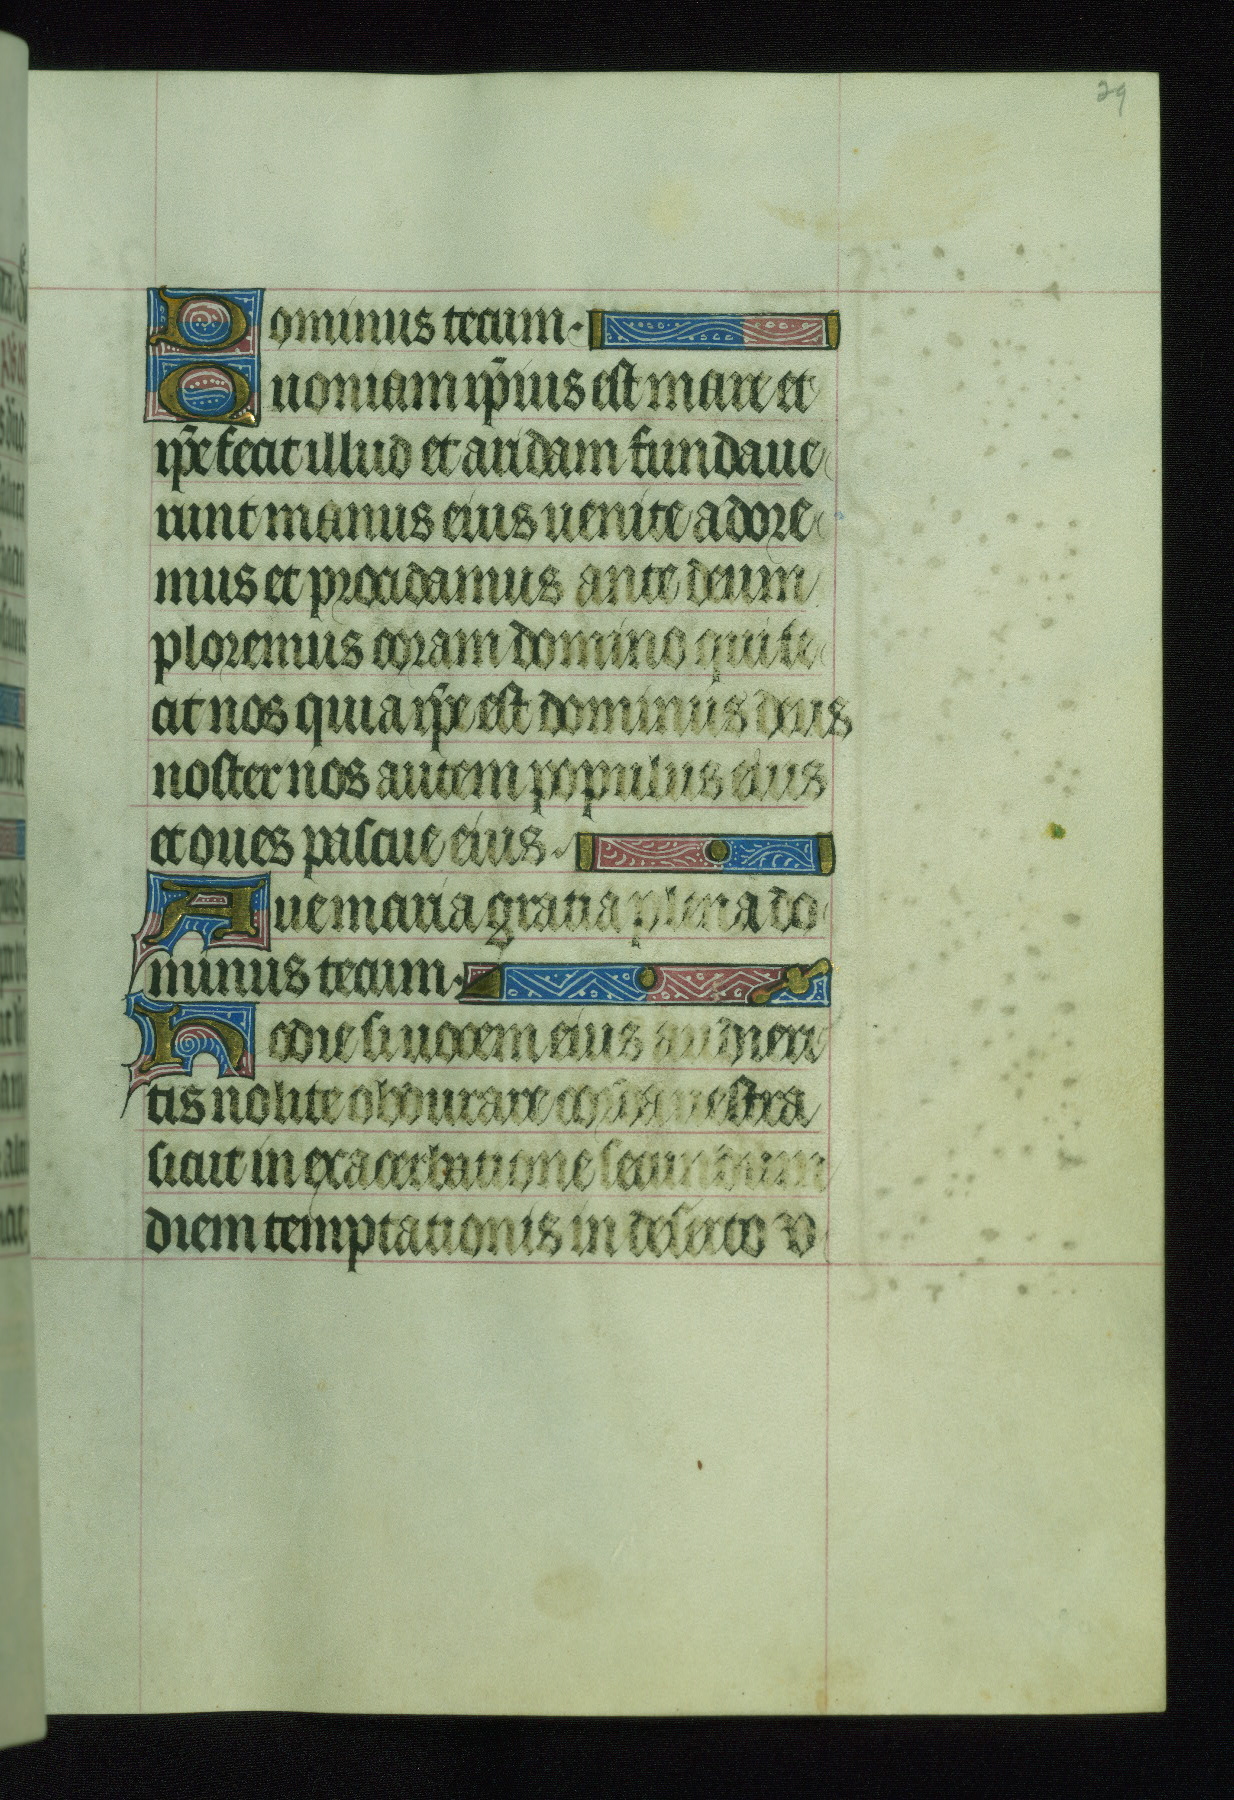 29
Dominus tecum.
Quoniam ip̄ius est mare et
ip̄e fecit illud et aridam fundaue
runt manus eius uenite adore
mus et procidamus ante deum
ploremus coram domino qui fe
cit nos quia ip̄e est dominus deus
noster nos autem populus eius
et oues pascue eius.
Aue maria gratia plena do
minus tecum.
Hodie si uocem eius audieri
tis nolite obdurare corda uestra
sicut in exacerbatione secundum
diem temptationis in deserto v